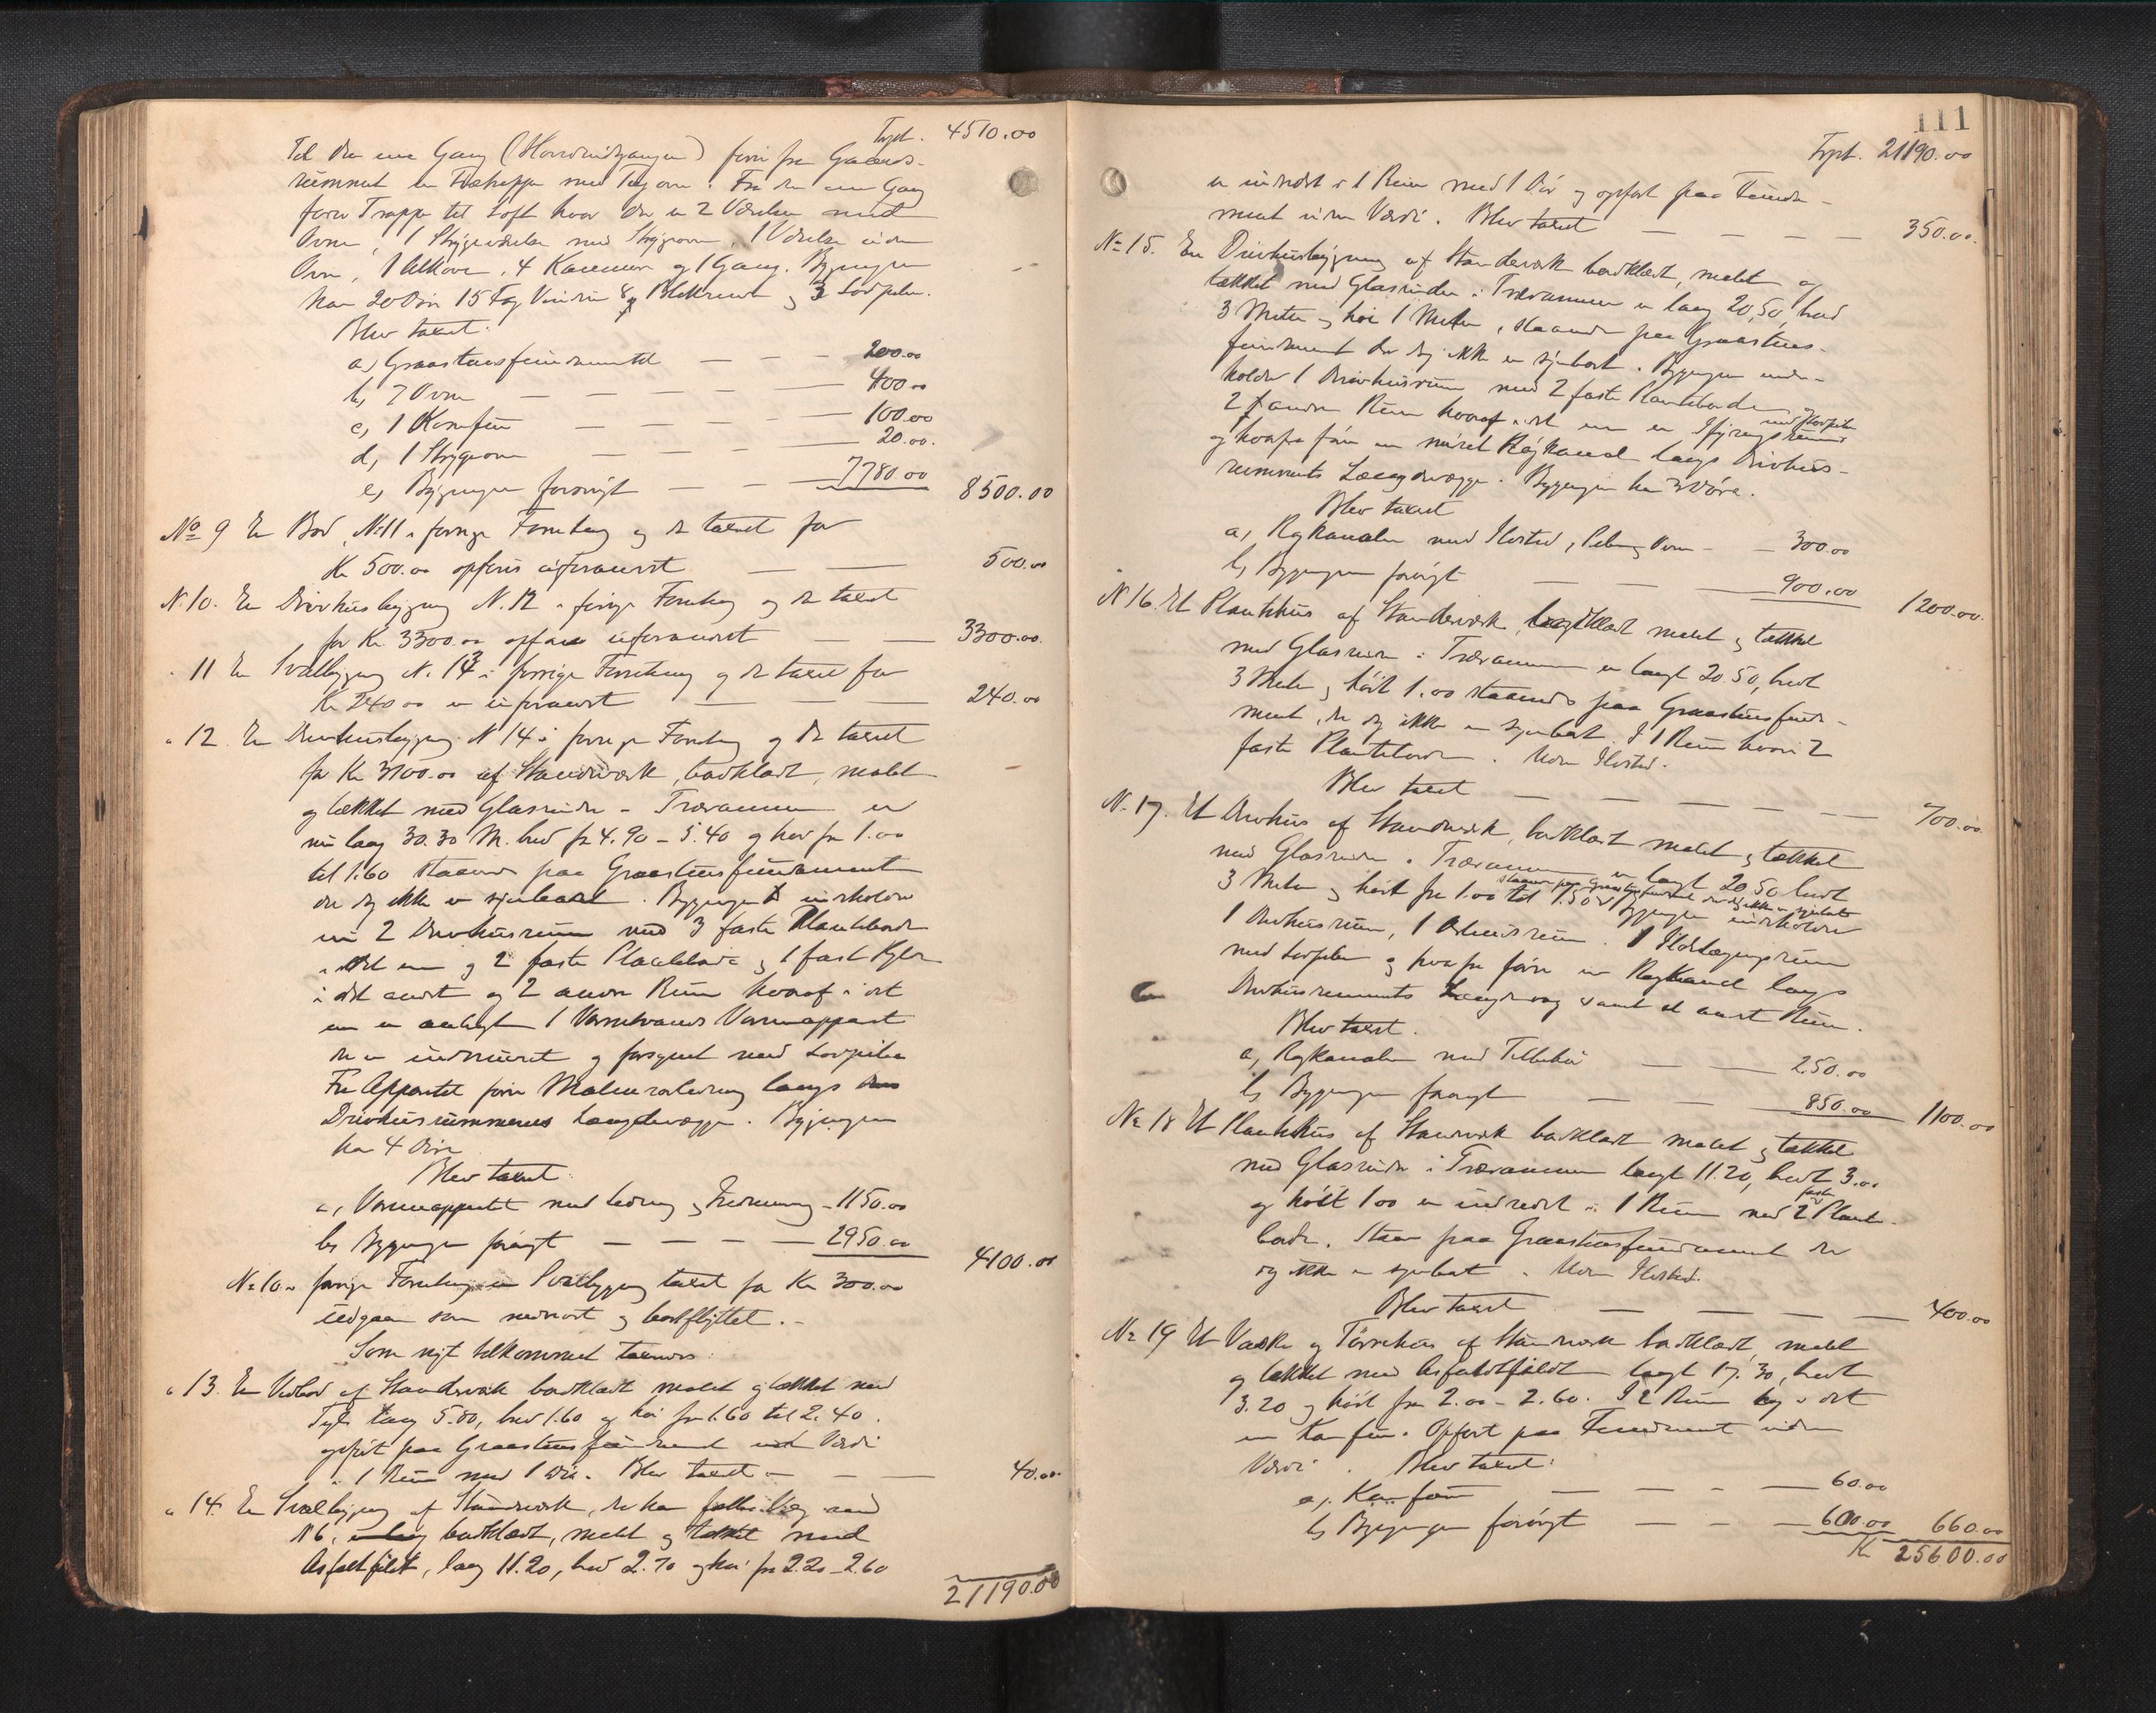 Trpt. 4510.00
Til den ene Gang (Hovedindgangen) fører fra Gaards-
rummet en Trætrappe med Tag over. Fra den ene Gang
fører Trappe til Loft hvor der er 2 Værelser med
Ovne, 1 Strygeværelse med Strygeovn, 1 Værelse uden
Ovn, 1 Alkove, 4 Kammer og 1 Gang. Bygningen
har 20 Døre 15 Fag Vinduer og 3 Lodpiber.
Blev taxeret:
a) Graastensfundamentet — — — 200.00
b, 7 Ovne — — — — 400.00
c, 1 Komfur — — — 100.00
d, 1 Strygeovn — — — 20.00.
e, Bygningen forøvrigt — — 7780.00 8500.00
No 9 En Bod, No 11 i forrige Forretning og der taxeret for
Kr 500.00 opføres uforandret — — 500.00
N. 10. En Drivhusbygning N. 12 i forrige Forretning og der taxeret
for Kr. 3300.00 opføres uforandret — — 3300.00.
" 11 En Svalbygning N. 13 i forrige Forretning og der taxeret for
Kr 240.00 er uforandret — — — 240.00
" 12. En Drivhusbygning N 14 i forrige Forretning og der taxeret
for Kr 3700.00 af Stænderværk, bordklædt, malet
og tækket med Glasruder i Trærammer er
nu lang 30.30 M. bred fra 4.90 - 5.40 og høi fra 1.00
til 1.60 staaende paa Graastensfundament
der dog ikke er synbart. Bygningen indeholder
nu 2 Drivhusrum med 3 faste Planteborde
i det ene og 2 faste Planteborde og 1 fast
i det andet og 2 andre Rum hvoraf i det
ene er anbragt 1 Varmtvands Varmeapparat
der er indmuret og forsynet med Lodpibe
Fra Apparatet fører langs
Drivhusrummenes Langdevægge. Bygningen
har 4 Døre
Blev taxeret:
a, Varmeapparatet med Ledning og Indmuring - 1150.00
b, Bygningen forøvrigt — — — — 2950.00 4100.00
No 10 i forrige Forretning en Svalbygning taxeret for Kr 300.00
udgaar som nedrevet og bortflyttet. -
Som nyt tilkommet taxeres:
" 13. En Vedbod af Stænderværk bordklædt malet og tækket med
Tegl lang 5.80, bred 1.60 og høi fra 1.60 til 2.40.
opført paa Graastensfundament uden Værdi
i 1 Rum med 1 Dør. Blev taxeret — — — 40.00
" 14. En Svalbygning af Stænderværk, der har fælles Væg med
N 6, bordklædt, malet og tækket med
Asfaltfilt, lang 11.20, bred 2.70 og høi fra 2.20 - 2.60
21190.00
111
Trpt. 21190.00
er indredet i 1 Rum med 1 Dør og opført paa Funda-
ment uden Værdi. Blev taxeret — — — — 350.00.
No 15. En Drivhusbygning af Stænderværk bordklædt, malet og
tækket med Glasruder i Trærammer er lang 20,50, bred
3 Meter og høi 1 Meter, staaende paa Graastens-
fundament der dog ikke er synbart. Bygningen inde-
holder 1 Drivhusrum med 2 faste Planteborde og
2 andre Rum hvoraf i det ene er Ifyringsrummet med Lodpibe
og hvorfra fører en muret Røgkanal langs Drivhus-
rummets Langdevægge. Bygningen har 3 Døre.
Blev taxeret
a, Røgkanalen med Ildsted, Pibe og Ovn - — 300.00
b, Bygningen forøvrigt — — — 900.00 1200.00.
N 16. Et Plantehus af Stænderværk, bordklædt malet og tækket
med Glasruder i Trærammer er langt 20.50, bredt
3 Meter og høit 1.00 staaende paa Graastensfunda-
ment, der dog ikke er synbart. I 1 Rum hvori 2
faste Planteborde. Uden Ildsted.
Blev taxeret — — — — — — 700.00
N. 17. Et Drivhus af Stænderværk, bordklædt malet og tækket
med Glasruder i Trærammer er langt 20.50 bredt
staaende paa Graastensfundament der dog ikke er synbart
3 Meter og høit fra 1.00 til 1.50. Bygningen indeholder
1 Drivhusrum, 1 Arbeidsrum. 1 Ildlægningsrum
med Lodpibe og hvorfra fører en Røgkanal langs
Drivhusrummets Langdevæg samt et andet Rum.
Blev taxeret.
a, Røgkanalen med Tilbehør — — 250.00
b, Bygningen forøvrigt — — — 850.00 1100.00
No 18 Et Plantehus af Stænderværk bordklædt malet og tækket
med Glasruder i Trærammer langt 11.20, bredt 3.00
og høit 1.00 er indredet i 1 Rum med 2 faste Plante-
borde. Staar paa Graastensfundament der
dog ikke er synbart. Uden Ildsted.
Blev taxeret — — — — 400.00
No 19 Et Vaske og Tørrehus af Stænderværk bordklædt, malet
og tækket med Asfaltfilt langt 17.30, bredt
3.20 og høit fra 2.00 - 2.60. I 2 Rum og i det
ene Komfur. Opført paa Fundament uden
Værdi. Blev taxeret:
a, Komfur — — — — 60.00
b, Bygningen forøvrigt — — — 600.00 660.00
Kr 25600.00